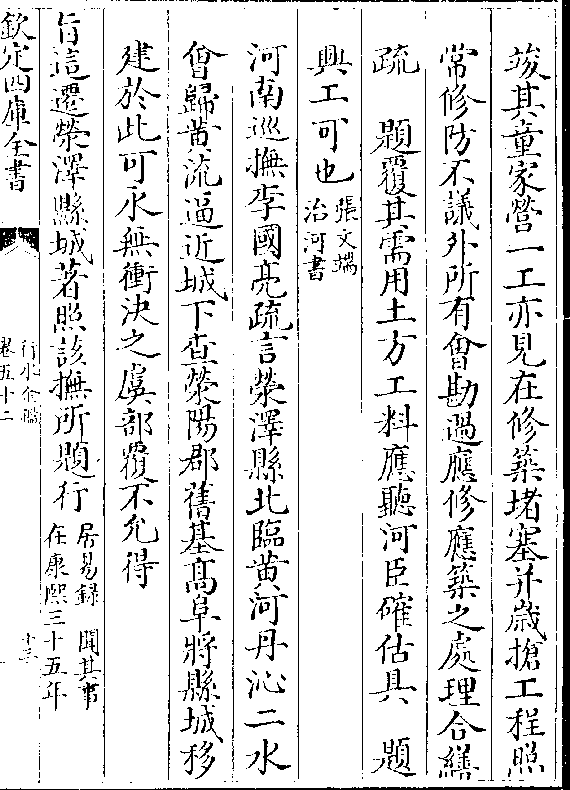 竣其童家營一工亦見在修築堵塞并歲搶工程照
常修防不議外所有會勘過應修應築之處理合繕
疏　題覆其需用土方工料應聽河臣確估具　題
興工可也張文端
治河書
河南巡撫李國亮疏言滎澤縣北臨黃河丹沁二水
會歸黃流逼近城下查滎陽郡舊基高阜將縣城移
建於此可永無衝決之虞部覆不允得
旨這遷滎澤縣城著照該撫所題行居易録　聞其事
在康熙三十五年
欽定四庫全書
行水金鑑
卷五十二